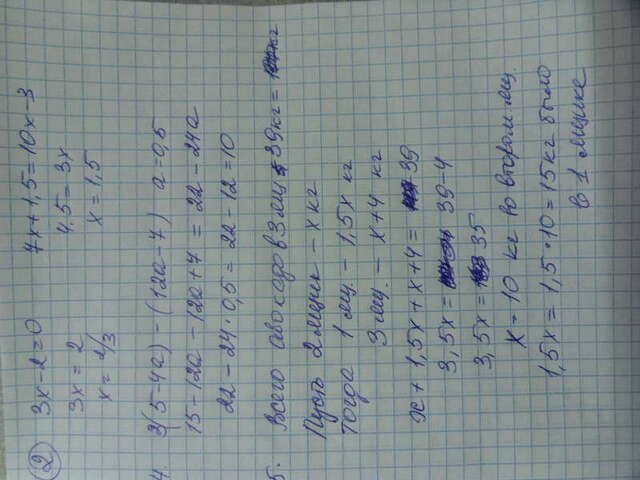 2 3x-2=0 7x+1,5=10x-3
3x=2 4,5=3x
x=2/3 x=1,5
4. 3(5-4a)-(12a-7) a=0,5
15-12a-12a+7=22-24a
22-24·0,5=22-12=10
5. Всего авокадо в 3 ящ 39 кг=
Пусть 2 ящик - x кг
Тогда 1 ящ. - 1,5x кг
3 ящ. - x+4 кг
x+1,5x+x+4= 39
3,5x= 39-4
3,5x= 35
x=10 кг во втором ящ.
1,5x=1,5·10=15 кг было
в 1 ящике